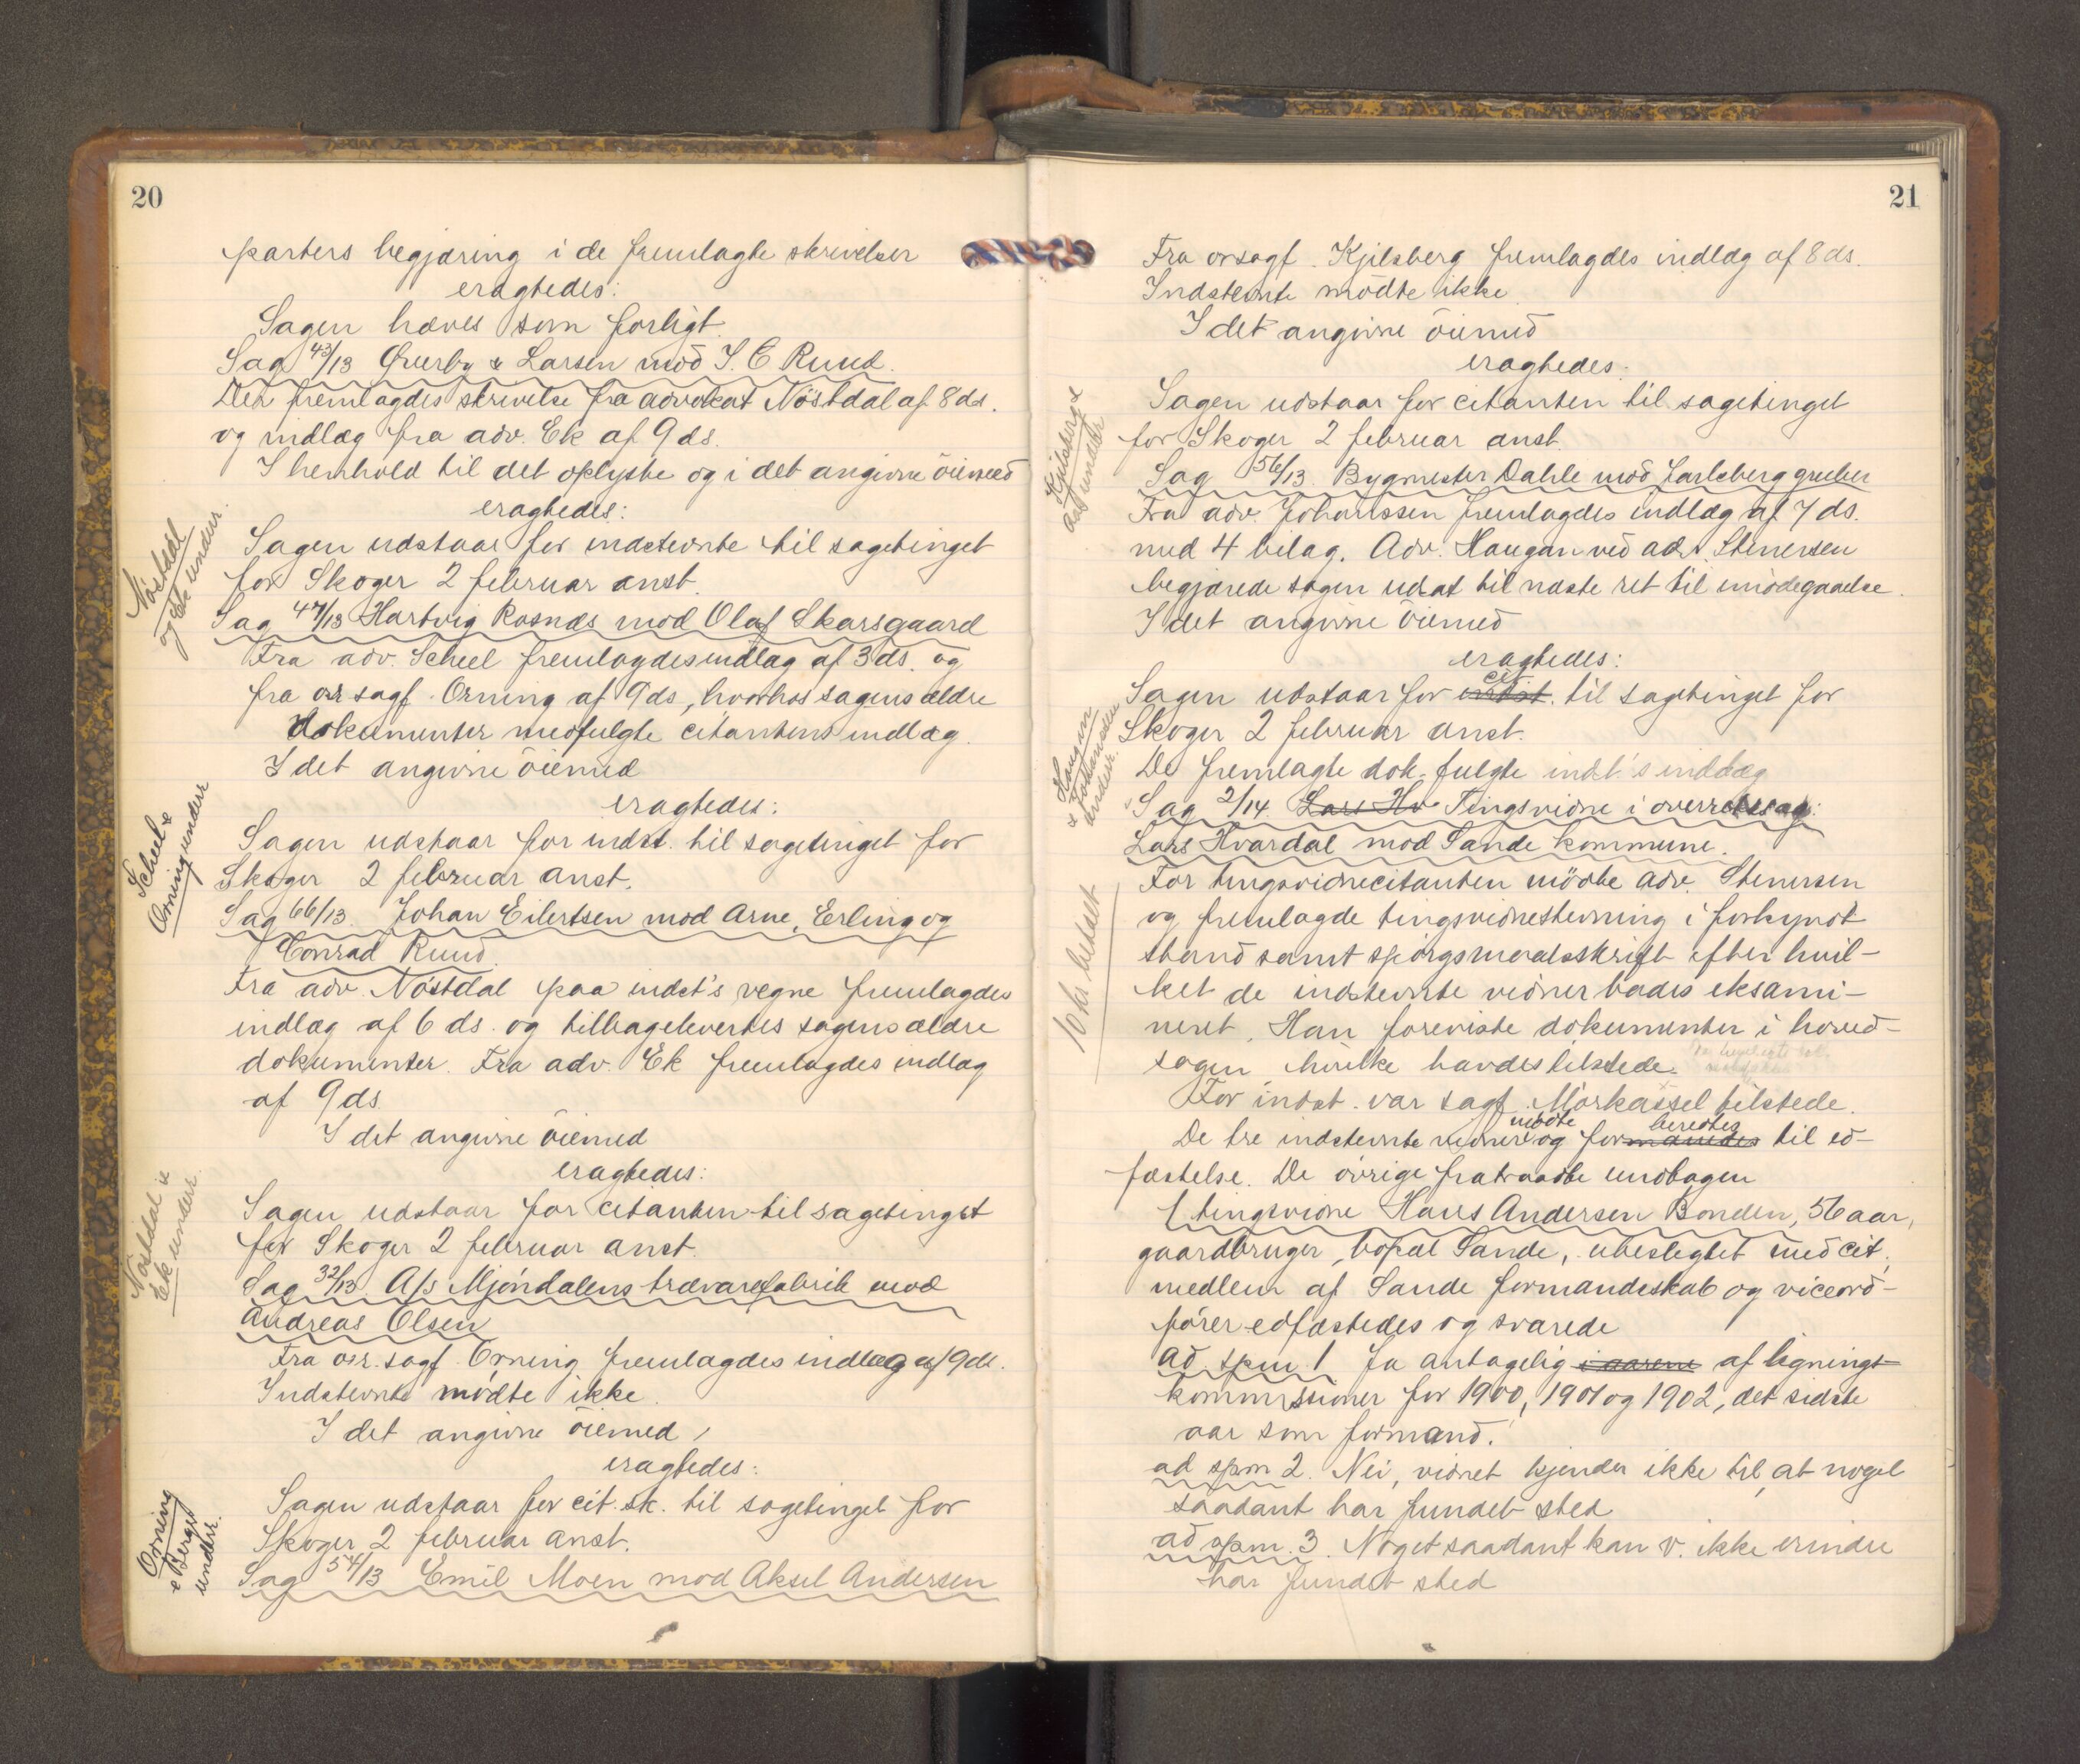 20
parters begjæring i de fremlagte skrivelser
eragtedes:
Sagen hæves som forligt.
Sag 43/13 Øverby & Larsen mod I. E Ruud.
Der fremlagdes skrivelse fra advokat Nöstdal af 8 ds.
og indlæg fra adv. Ek af 9 ds.
I henhold til det oplyste og i det angivne öiemed
eragtedes:
Sagen udstaar for indstevnte til sagetinget
for Skoger 2 februar anst.
Nöstdal
og Ek underr.
Sag 47/13 Hartvig Rosnæs mod Olaf Skarsgaard
Fra adv. Scheel fremlagdes indlæg af 3 ds. og
fra o.r sagf. Orning af 9 ds, hvorhos sagens ældre
dokumenter medfulgte citantens indlæg.
I det angivne öiemed
eragtedes:
Sagen udstaar for indst. til sagetinget for
Skoger 2 februar anst.
Scheel &
Orning underr
Sag 66/13. Johan Eilertsen mod Arne, Erling og
Conrad Ruud.
Fra adv. Nöstdal paa indst's vegne fremlagdes
indlæg af 6 ds. og tilbagelevertes sagens ældre
dokumenter. Fra adv. Ek fremlagdes indlæg
af 9 ds.
I det angivne öiemed
eragtedes:
Sagen udstaar for citanten til sagetinget
for Skoger 2 februar anst.
Nöstdal &
Ek underr.
Sag 32/13. A/s Mjöndalens trævarefabrik mod
Andreas Olsen
Fra o.r. sagf. Orning fremlagdes indlæg af 9 ds.
Indstevnte mödte ikke.
I det angivne öiemed,
eragtedes:
Sagen udstaar for cit. sk. til sagetinget for
Skoger 2 februar anst.
Orning
& Berget
underr.
Sag 54/13 Emil Moen mod Aksel Andersen
21
Fra orsagf. Kjelsberg fremlagdes indlæg af 8 ds.
Indstevnte mödte ikke.
I det angivne öiemed
eragtedes:
Sagen udstaar for citanten til sagetinget
for Skoger 2 februar anst.
Kjelsberg &
underr
Sag 56/13. Bygmester Dahle mod Jarlsberg gruber
Fra adv. Johanssen fremlagdes indlæg af 7 ds.
med 4 bilag. Adv. Haugan ved adv Stenersen
begjærede sagen udsat til næste ret til imödegaaelse.
I det angivne öiemed
eragtedes:
Sagen udstaar for indst. cit. til sagetinget for
Skoger 2 februar anst.
De fremlagte dok. fulgte indst's indlæg
Haugan
& Johanssen
underr.
Sag 2/14. Lars Hv Tingsvidne i overretssag:
Lars Hvardal mod Sande kommune.
For tingsvidnecitanten mödte adv. Stenersen
og fremlagde tingsvidnestevning i forkyndt
stand samt spörgsmaalsskrift efter hvil-
ket de indstevnte vidner bades eksami-
neret. Han foreviste dokumenter i hoved-
sagen, hvilke havdes tilstede.
10 kr. betalt
For indst. var sagf. Mörkassel tilstede.
De tre indstevnte vidner mödte og formanedes beredtes til ed-
fæstelse. De övrige fratraadte undtagen
1 tingsvidne Hans Andersen Bonden, 56 aar,
gaardbruger, bopæl Sande, ubeslegtet med cit,
medlem af Sande formandsskab og viceord-
förer edfæstedes og svarede
ad spm. 1 Ja antagelig i aarene af lignings-
kommissionen for 1900, 1901 og 1902, det sidste
aar som formand.
ad spm 2. Nei, vidnet kjender ikke til, at noget
saadant har fundet sted
ad spm. 3. Noget saadant kan v. ikke erindre
har fundet sted